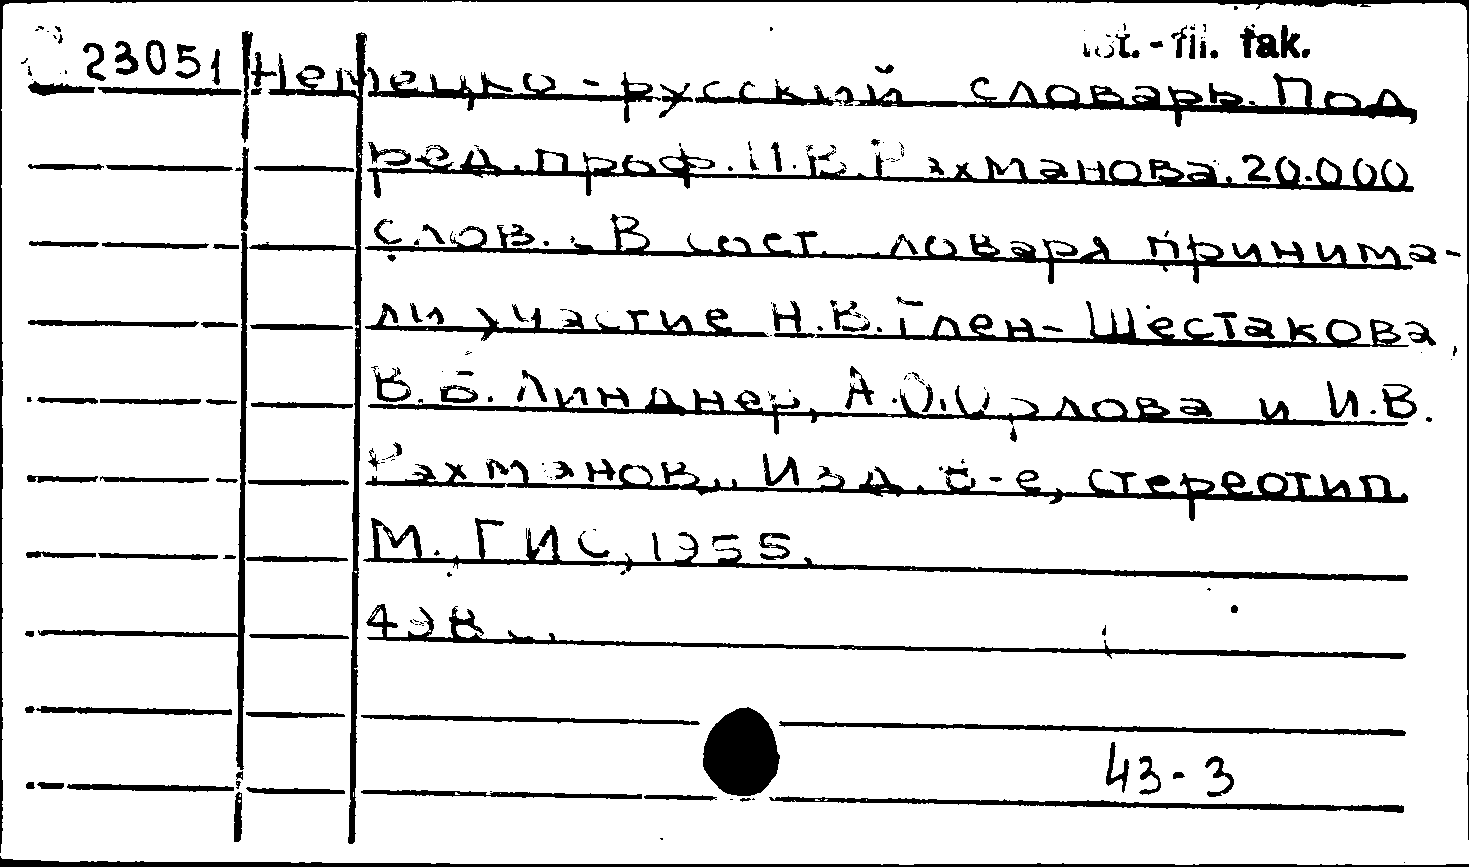 ist.-fil. fak.
23051 Немецко-русский словарь. Под
ред. проф. И.В. Рахманова. 20.000
слов. В сост. ловаря принима-
ли участие Н.В. Глен-Шестакова,
В.Б. Линднер, А.О. Орлова и И.В.
Рахманов. Изд. -е, стереотип.
М., ГИС, 1955.
498
43-3